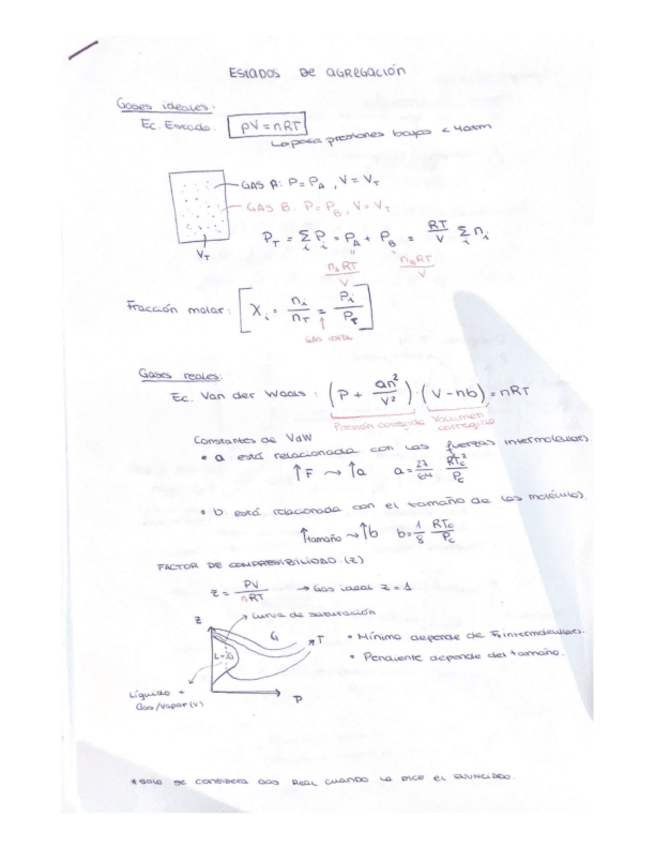 ESTADOS DE AGREGACIÓN
Gases ideales:
Ec. Estado: PV = nRT
↳ para presiones bajas < 40atm
GAS A: P = P_A , V = V_T
GAS B: P = P_B , V = V_T
V_T
P_T = Σ_i P_i = P_A + P_B = RT/V Σ_i n_i
n_A RT/V n_B RT/V
Fracción molar: [X_i = n_i/n_T = P_i/P_T]
GAS IDEAL
Gases reales:
Ec. Van der Waals: (P + an²/V²)·(V - nb) = nRT
Presión corregida Volumen corregido
Constantes de VdW
• a está relacionada con las fuerzas intermoleculares.
↑F → ↑a a = 27/64 · RTc²/Pc
• b está relacionada con el tamaño de las moléculas.
↑tamaño → ↑b b = 1/8 RTc/Pc
FACTOR DE COMPRESIBILIDAD (Z)
Z = PV/nRT → Gas ideal Z = 1
Curva de saturación
Z G T
L+G
P
• Mínimo depende de F. intermoleculares.
• Pendiente depende del tamaño.
Líquido +
Gas/Vapor (V)
* SOLO SE CONSIDERA GAS REAL CUANDO LO DICE EL ENUNCIADO.